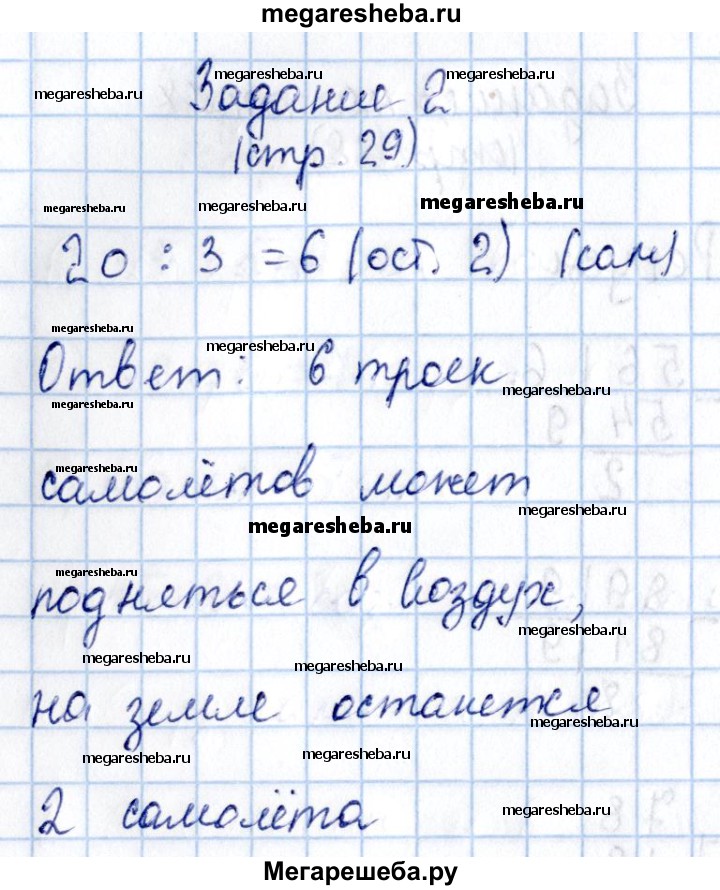 megaresheba.ru
megaresheba.ru megaresheba.ru
megaresheba.ru
Задание 2
(стр. 29)
megaresheba.ru megaresheba.ru megaresheba.ru
20 : 3 = 6 (ост. 2) (сам)
megaresheba.ru
megaresheba.ru
Ответ: 6 троек
megaresheba.ru
megaresheba.ru
megaresheba.ru
самолётов может
megaresheba.ru
megaresheba.ru
megaresheba.ru
подняться в воздух,
megaresheba.ru
megaresheba.ru
megaresheba.ru
на земле останется
megaresheba.ru
megaresheba.ru
megaresheba.ru
2 самолёта
megaresheba.ru
Мегарешеба.ру